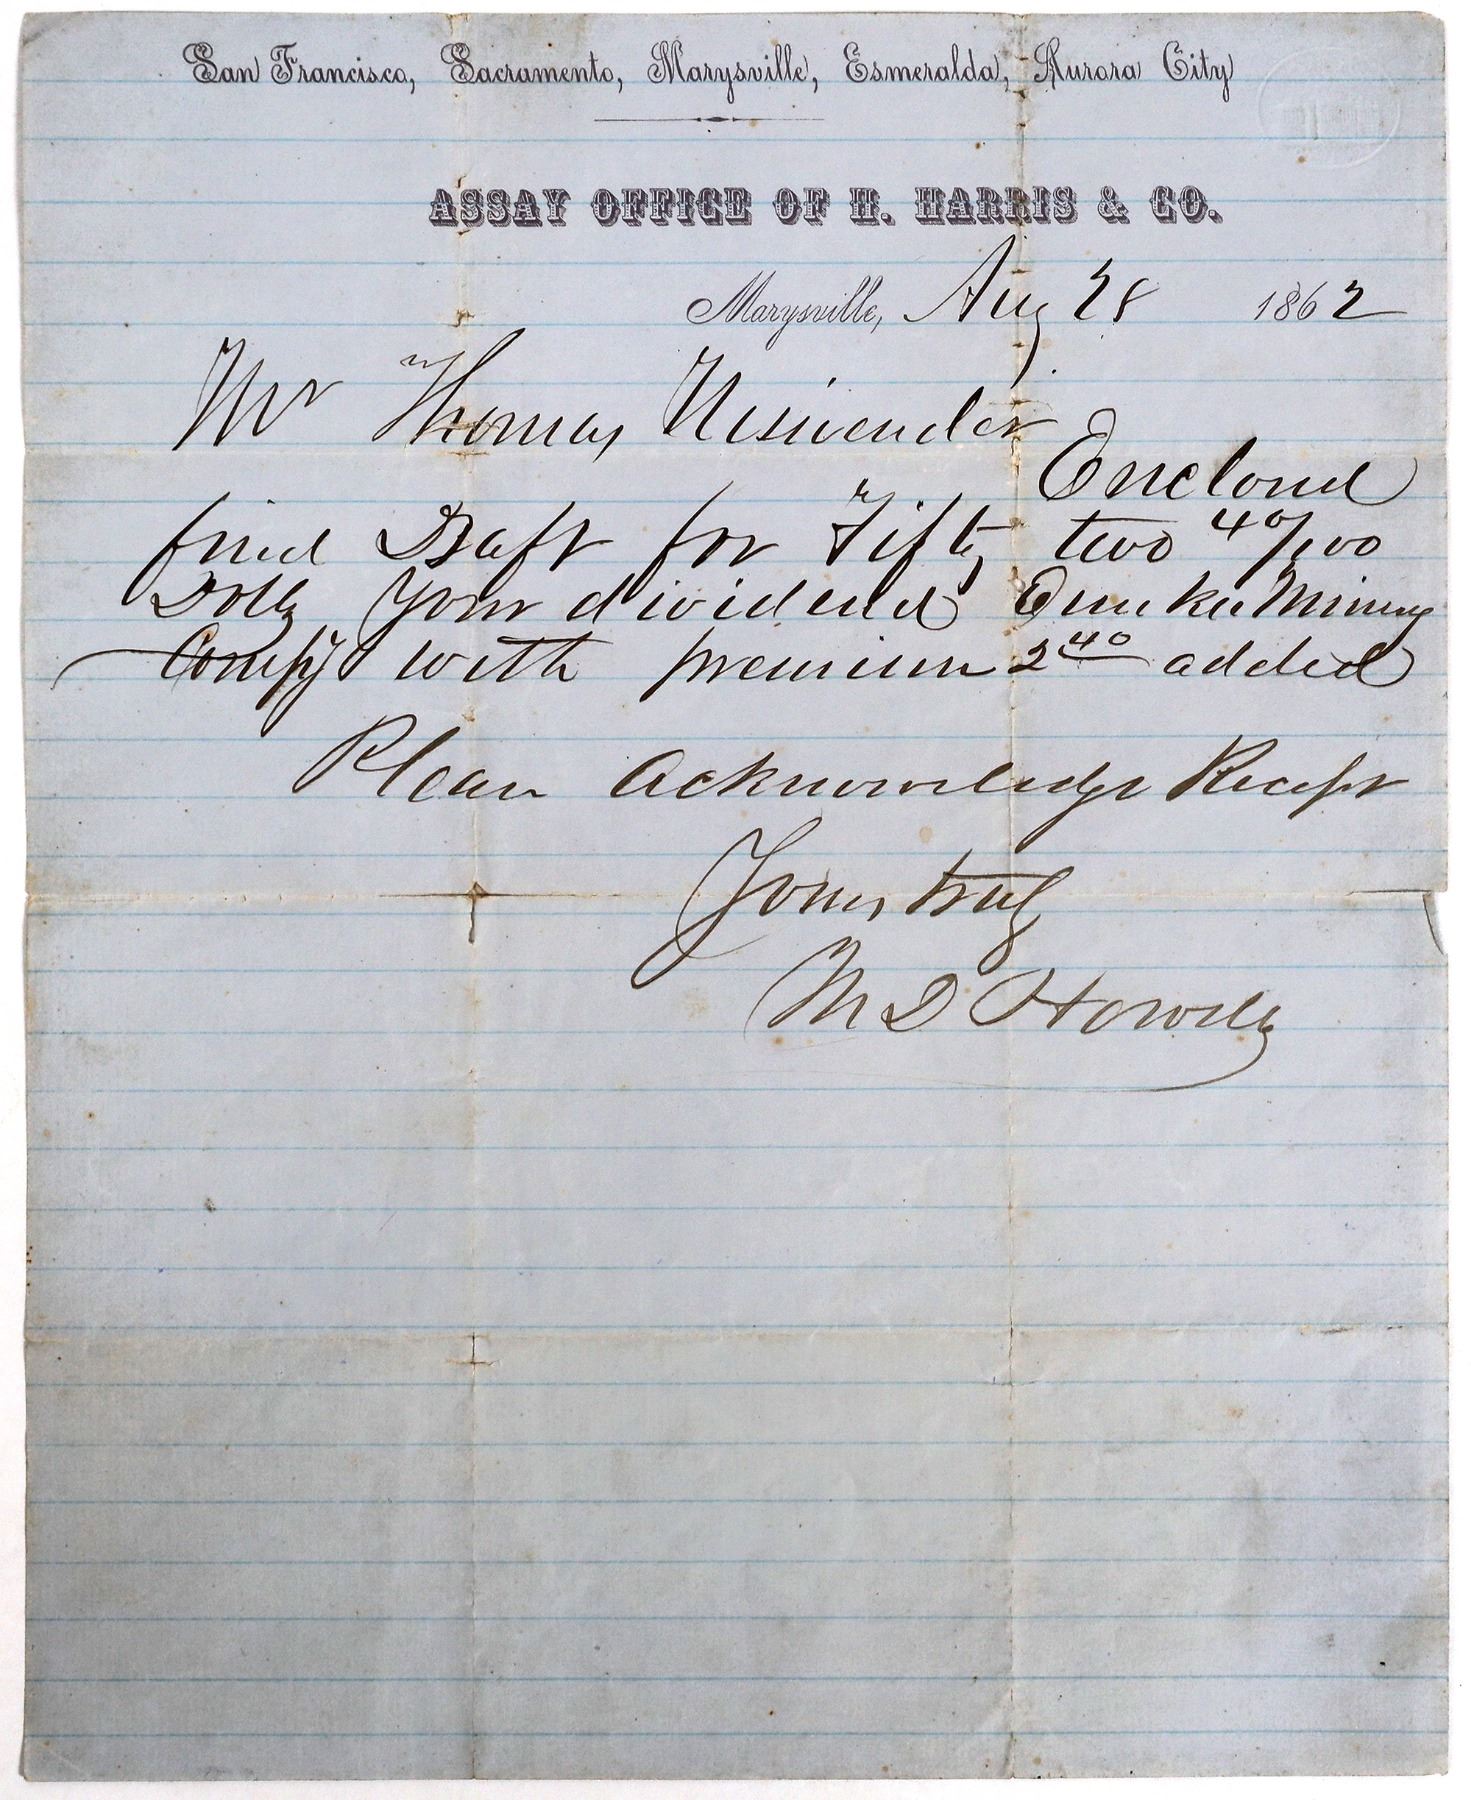 San Francisco, Sacramento, Marysville, Esmeralda, Aurora City
ASSAY OFFICE OF H. HARRIS & CO.
Marysville, Aug 28 1862
Mr Thomas
Enclosed
find Draft for Fifty two 40/100
Dolls Your dividend Eureka Mining
Compy with premium 2 40 added
Please Acknowledge Receipt
Yours truly
M D Howell